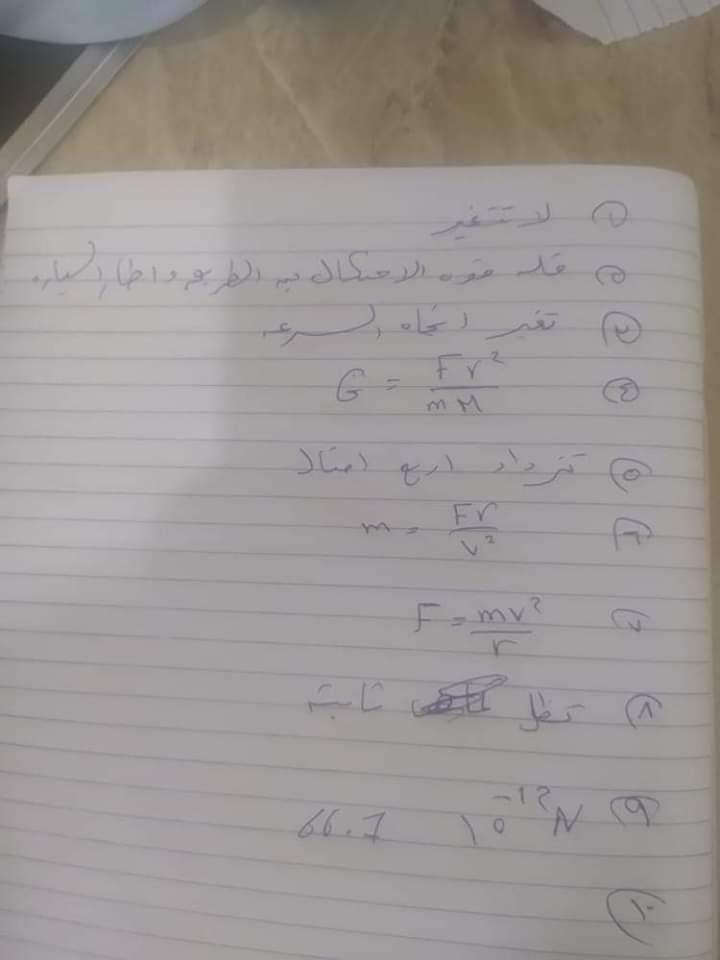 ① لا تتغير
② قلة قوة الاحتكاك بين الطريق واطار السيارة
③ تغير اتجاه السرعة
④ G = Fr² / mM
⑤ تزداد اربع امثال
⑥ m = Fr / v²
⑦ F = mv² / r
⑧ تظل ثابتة
⑨ 66.7 10⁻¹² N
⑩